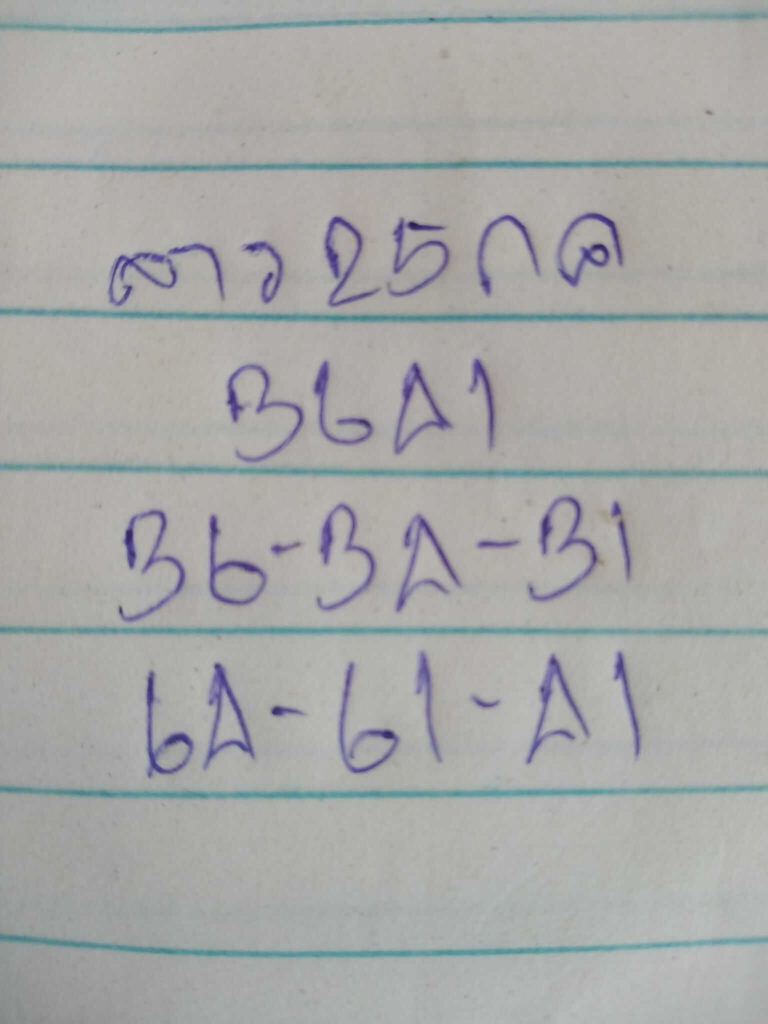 ลาว 25 กค
3641
36-34-31
64-61-41